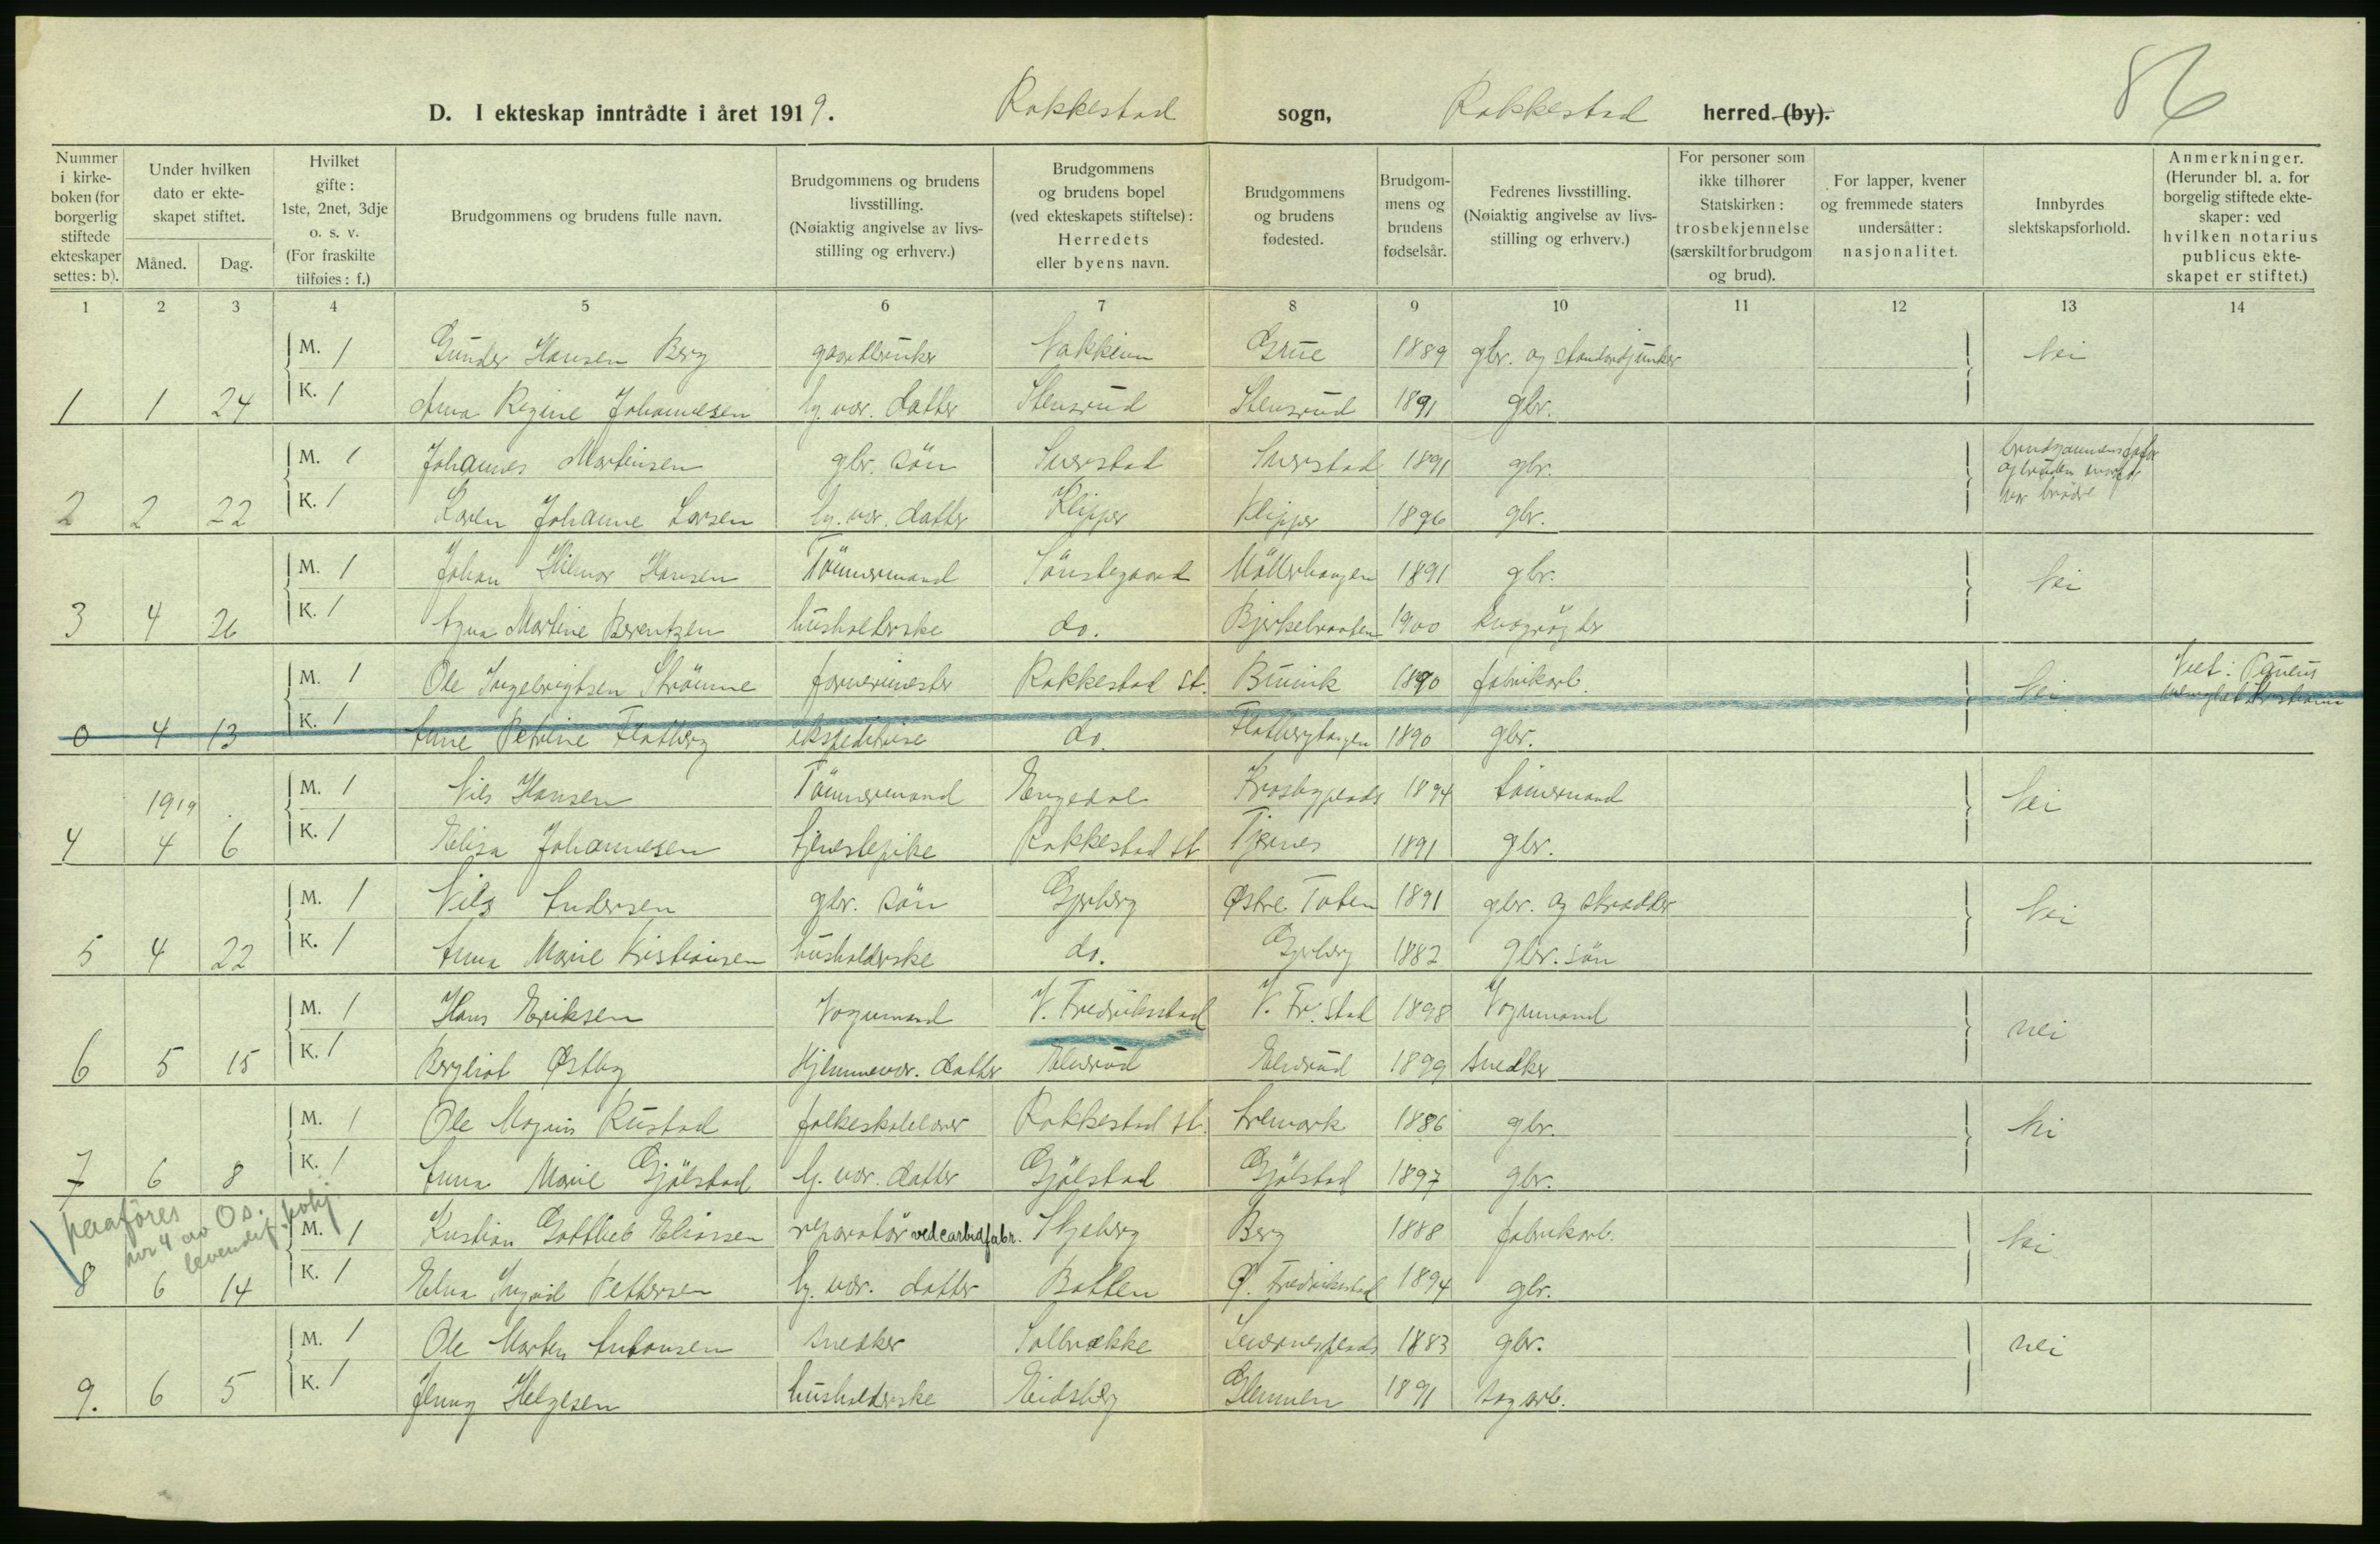 86
D. I ekteskap inntrådte i året 1919. Rakkestad sogn, Rakkestad herred (by).
Nummer i kirke-boken (for borgerlig stiftede ekteskaper settes: b).
Under hvilken dato er ekte-skapet stiftet.
Måned. Dag.
Hvilket gifte: 1ste, 2net, 3dje o. s. v. (For fraskilte tilføies: f.)
Brudgommens og brudens fulle navn.
Brudgommens og brudens livsstilling. (Nøiaktig angivelse av livs-stilling og erhverv.)
Brudgommens og brudens bopel (ved ekteskapets stiftelse): Herredets eller byens navn.
Brudgommens og brudens fødested.
Brudgom-mens og brudens fødselsår.
Fedrenes livsstilling. (Nøiaktig angivelse av livs-stilling og erhverv.)
For personer som ikke tilhører Statskirken: trosbekjennelse (særskilt for brudgom og brud).
For lapper, kvener og fremmede staters undersåtter: nasjonalitet.
Innbyrdes slektskapsforhold.
Anmerkninger. (Herunder bl. a. for borgelig stiftede ekte-skaper: ved hvilken notarius publicus ekte-skapet er stiftet.)
1 2 3 4 5 6 7 8 9 10 11 12 13 14
M. 1 Gunder Hansen Berg gaardbruker Nakkim Grue 1889 gbr. og Nei
1 1 24 K. 1 Anna Regine Johannesen hj. vær. datter Stensrud Stensrud 1891 gbr.
M. 1 Johannes Martinsen gbr. sön Sverstad Sverstad 1891 gbr. brudgommens fader og brudens morfar var brødre
2 2 22 K. 1 Karen Johanne Larsen hj. vær. datter Klipper Klipper 1896 gbr.
M. 1 Johan Hilmar Hansen Tömmermand Tönsbegaard Möllerhaugen 1891 gbr. Nei
3 4 26 K. 1 Agna Martine Berentzen husholderske do. Bjerkebraaten 1900 kvægrögter
M. 1 Ole Ingebrigtsen Strömme formermester Rakkestad st. Bruvik 1890 fabrikarb. Nei Viet:
0 4 13 K. 1 Anne Petrine Flatberg ekspeditrise do. Flatberghaugen 1890 gbr.
1919 M. 1 Nils Hansen Tömmermand Engedal Krosbyplads 1894 tömermand Nei
4 4 6 K. 1 Elisa Johannesen tjenestepike Rakkestad st Tjernes 1891 gbr.
M. 1 Nils Andersen gbr. sön Gjerberg Østre Toten 1891 gbr. og skrædder Nei
5 4 22 K. 1 Anna Marie Kristiansen husholderske do. Gjerberg 1882 gbr. sön
M. 1 Hans Eriksen Vognmand V. Fredrikstad V. Fr. stad 1898 Vognmand nei
6 5 15 K. 1 Bergliot Østby Hjemmevær. datter Elverud Elverud 1899 snedker
M. 1 Ole Magnus Rustad folkeskolelærer Rakkestad st. Aremark 1886 gbr. Nei
7 6 8 K. 1 Anna Marie Gjölstad hj. vær. datter Gjölstad Gjölstad 1897 gbr.
paaföres nr 4 av Os. levendef.
M. 1 Kristian Gottlieb Eliassen reparatör ved carbidfabr. Skjeberg Berg 1888 fabrikarb. Nei
8 6 14 K. 1 Elna Ingrid Pettersen hj. vær. datter Botten Ø. Fredrikstad 1894 gbr.
M. 1 Ole Marten Antonsen snedker Solbrække 1883 gbr. nei
9. 6 5 K. 1 Jenny Helgesen husholderske Eidsberg Glemmen 1891 sagarb.